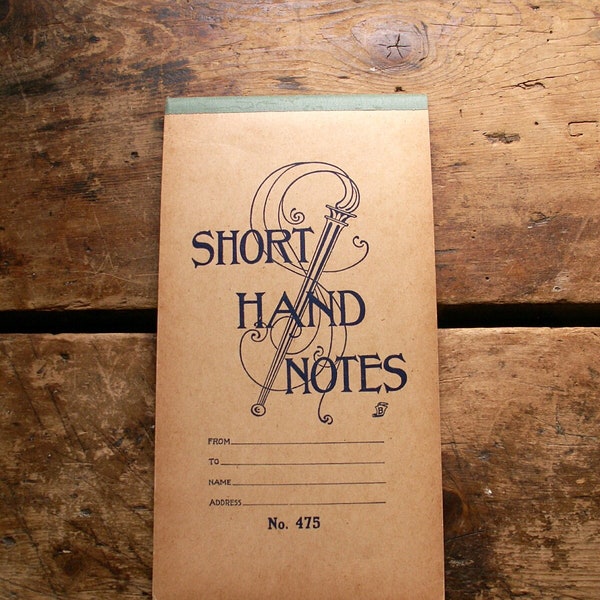 SHORT
HAND
NOTES
B
FROM
TO
NAME
ADDRESS
No. 475